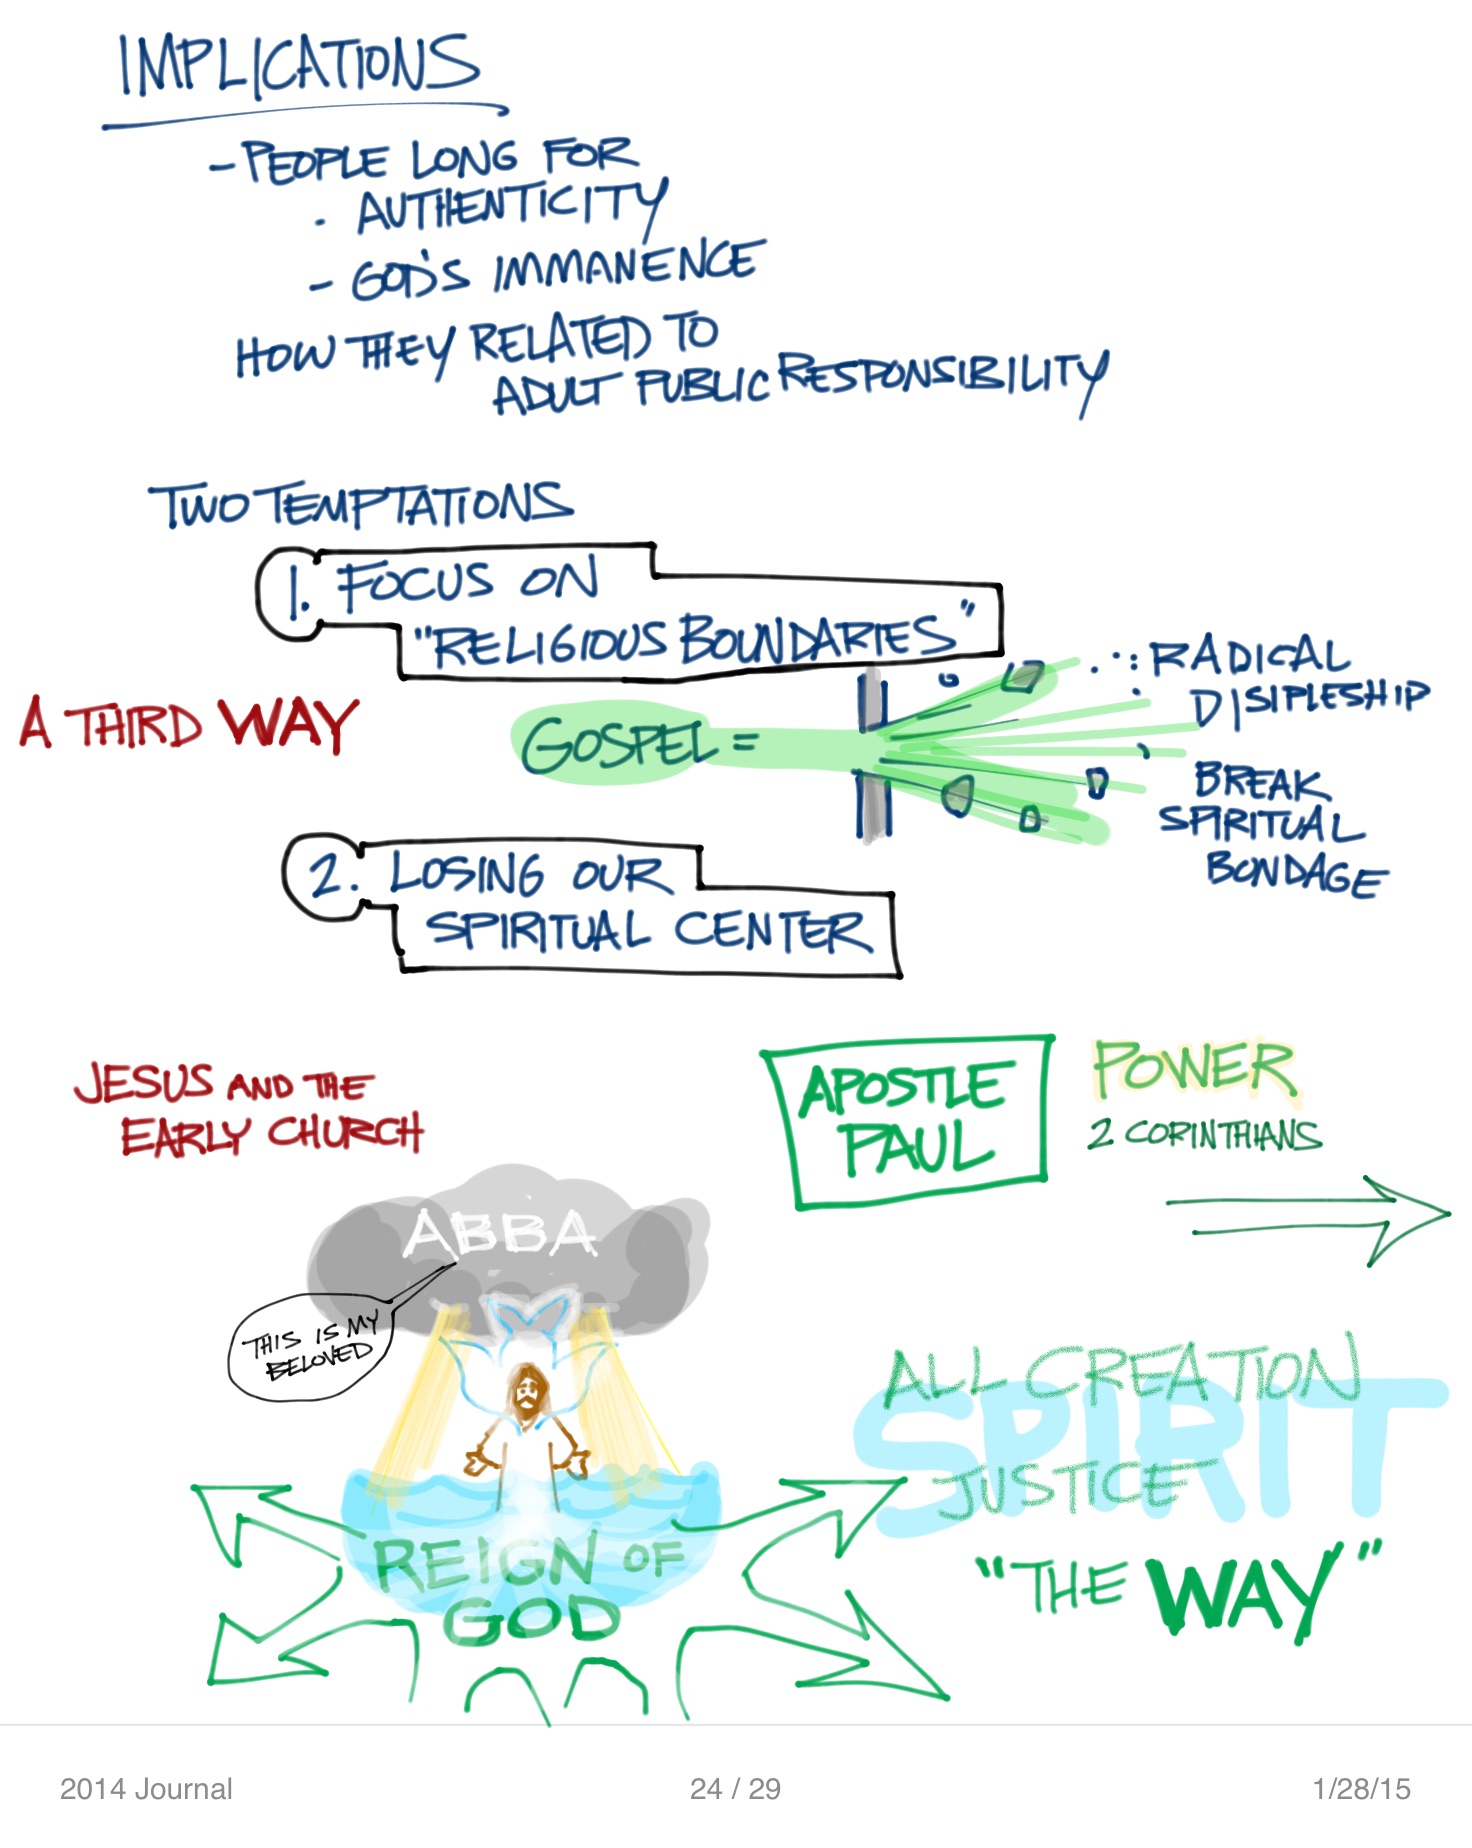 IMPLICATIONS
- PEOPLE LONG FOR
· AUTHENTICITY
- GOD'S IMMANENCE
HOW THEY RELATED TO
ADULT PUBLIC RESPONSIBILITY
TWO TEMPTATIONS
1. FOCUS ON
"RELIGIOUS BOUNDARIES"
A THIRD WAY
GOSPEL =
RADICAL
DISIPLESHIP
BREAK
SPIRITUAL
BONDAGE
2. LOSING OUR
SPIRITUAL CENTER
JESUS AND THE
EARLY CHURCH
APOSTLE
PAUL
POWER
2 CORINTHIANS
ABBA
THIS IS MY
BELOVED
REIGN OF
GOD
ALL CREATION
SPIRIT
JUSTICE
"THE WAY"
2014 Journal
24 / 29
1/28/15